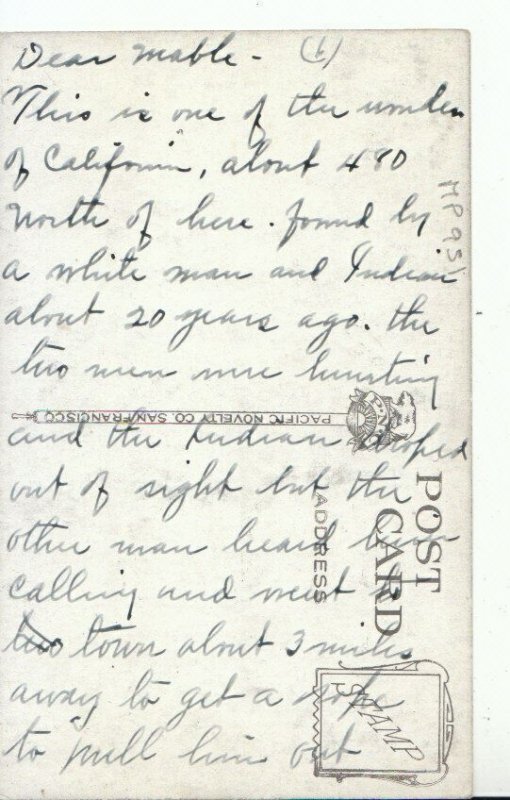 Dear Mable - (6)
This is one of the wonders
of California, about 480
North of here. found by
a white man and Indian
about 20 years ago. the
two men were hunting
and the Indian droped
out of sight but the
other man heard him
calling and went to
town about 3 miles
away to get a rope
to pull him out
MP 95
PACIFIC NOVELTY CO. SAN FRANCISCO
POST CARD
ADDRESS
STAMP